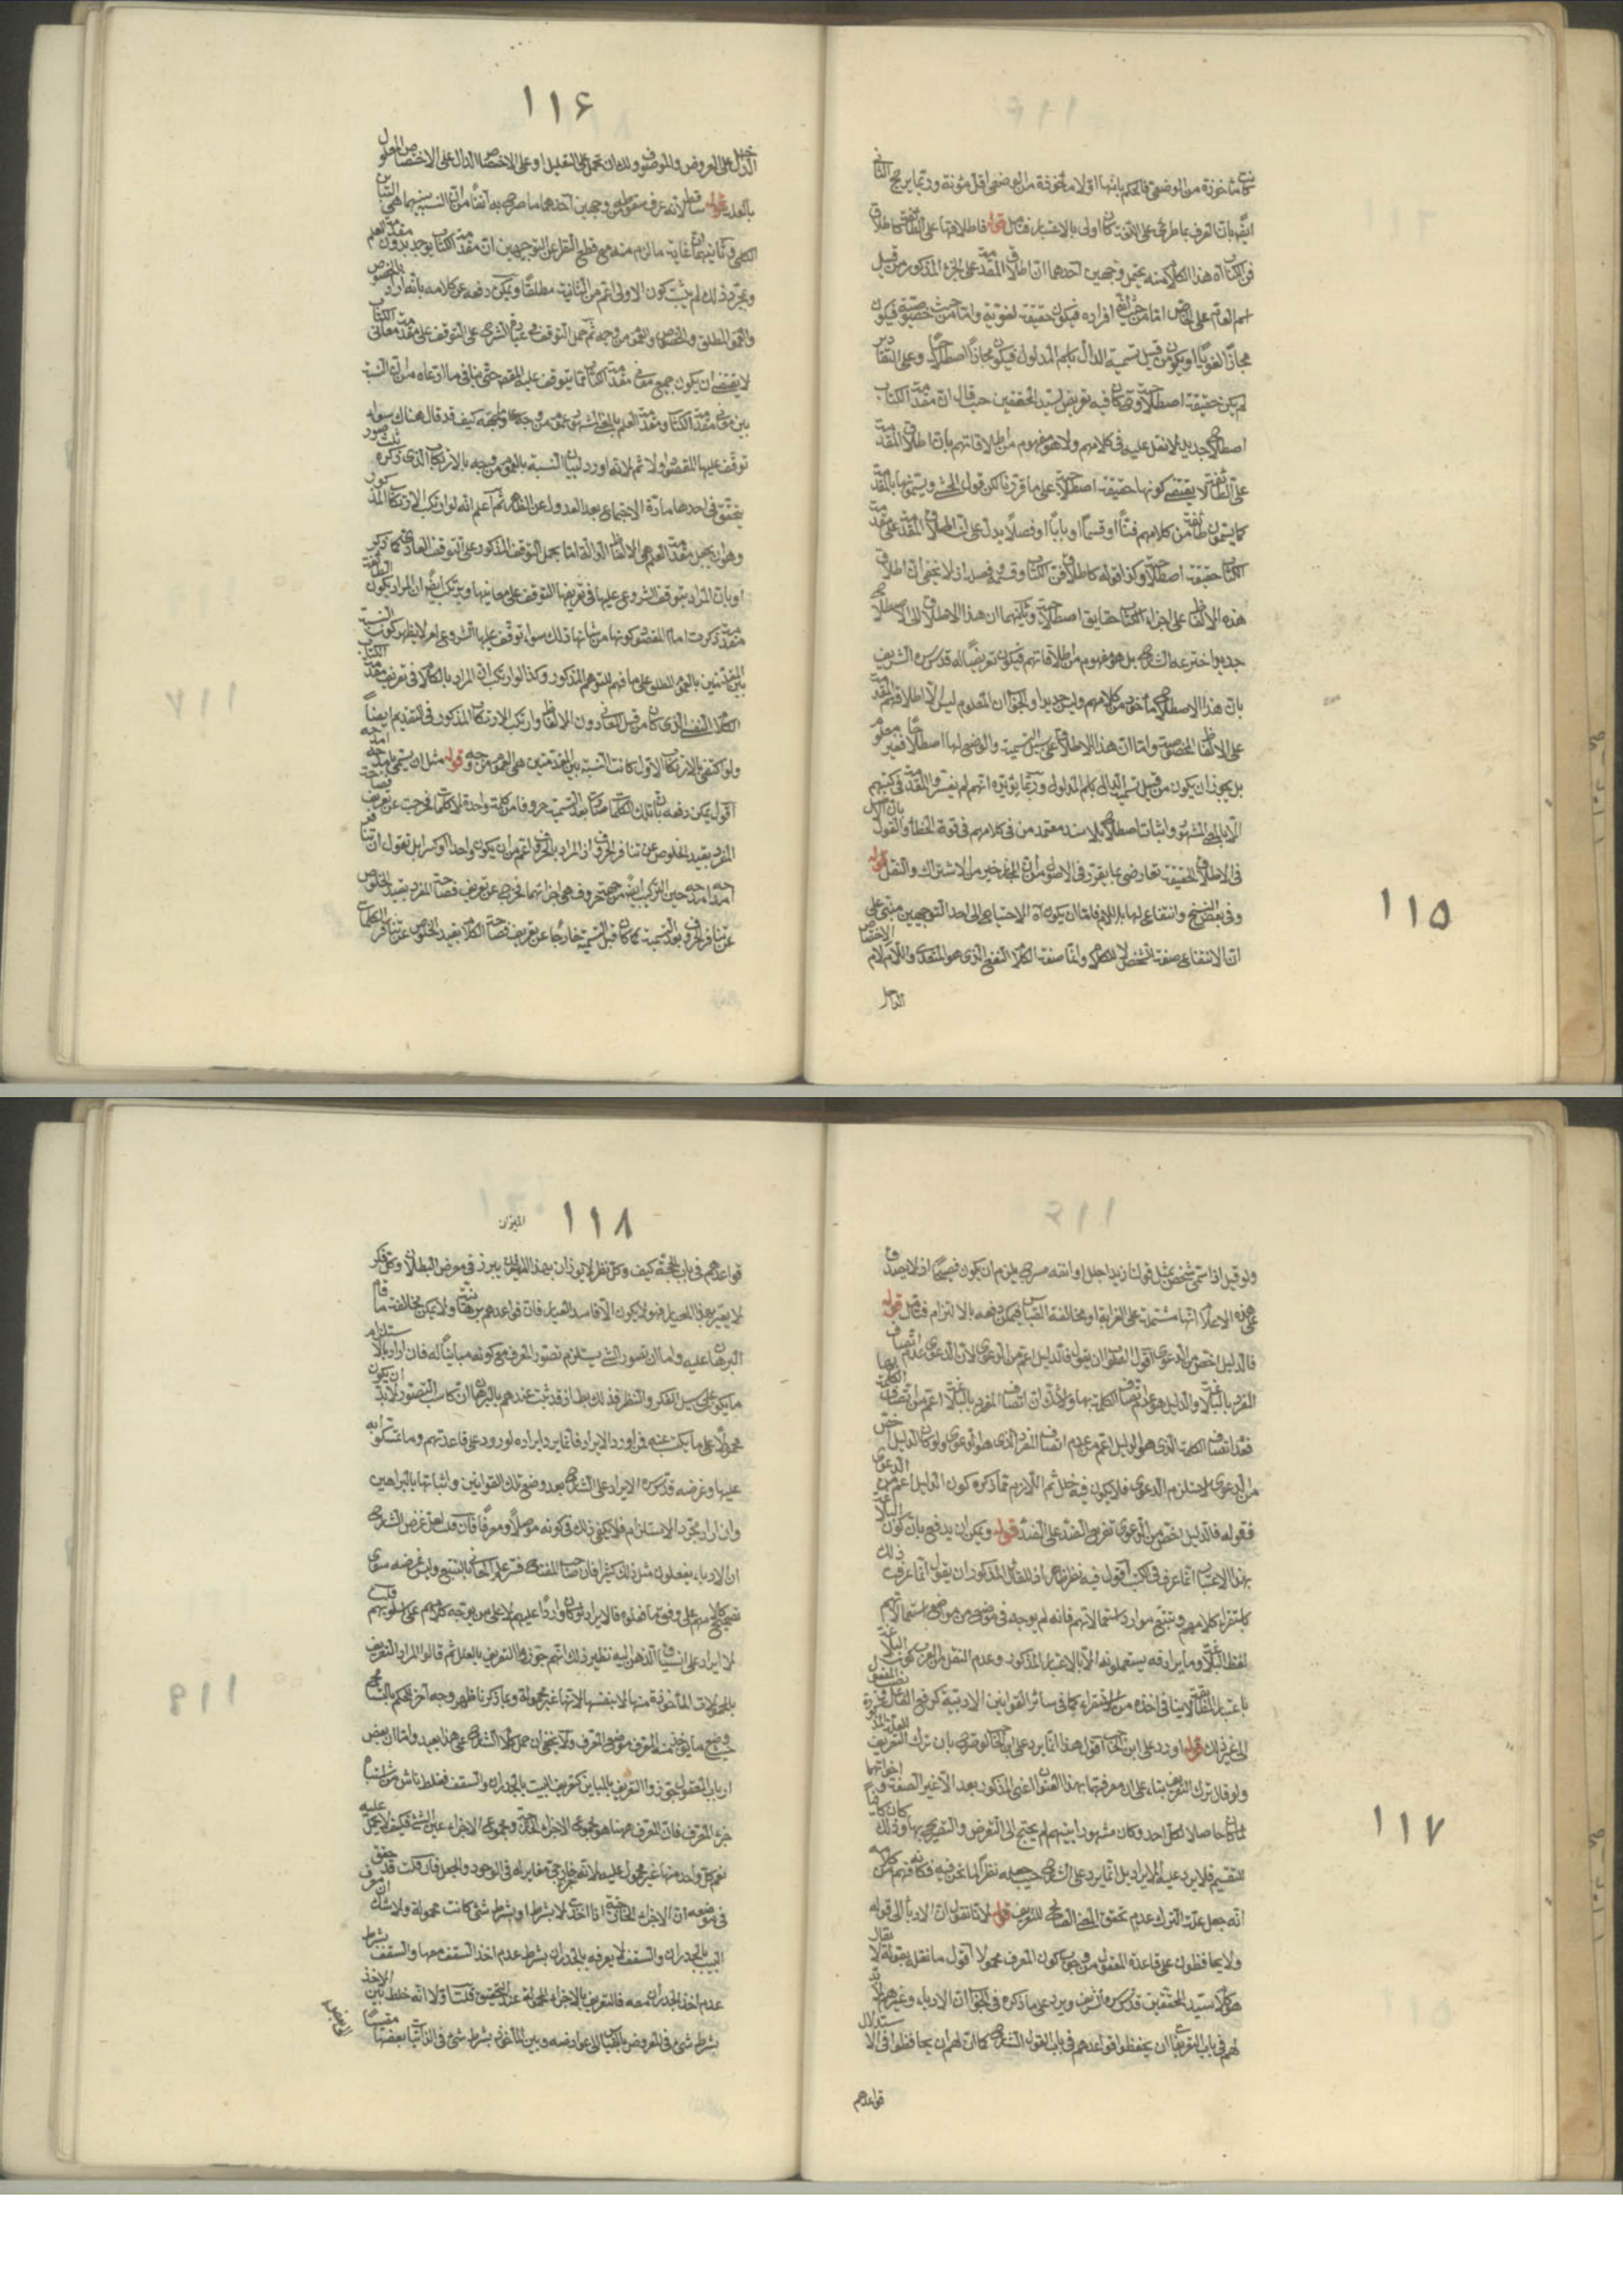 ١١۶
١١٥
كانت مأخوذة من الموضعي فالحكم بانها اولا مأخوذة من الموضعي اقل مؤنة وربما يرجح الثاني
ايضا بان التعرف بما طرئ على اولى بالاعتبار فتأمل قوله فاطلاقها على الطائفة كاطلاق
فن الكتاب اه هذا الكلام منه يحتمل وجهين احدهما ان اطلاق المقدمة على الجزء المذكور من قبيل
اسم العام على الخاص اما من حيث انه افراده فيكون حقيقة لغوية واما من حيث خصوصيته فيكون
مجازا لغويا او يكون من قبيل تسمية الدال باسم المدلول فيكون مجازا اصطلاحيا وعلى التقادير
لم يكن حقيقة اصطلاحية وكان فيه تعريض لسيد المحققين حيث قال ان مقدمة الكتاب
اصطلاح جديد لا نقل عليه في كلامهم ولا هو مفهوم من اطلاقاتهم بان اطلاق المقدمة
على الطائفة لا يقتضي كونها حقيقة اصطلاحية على ما قررنا لكن قول المحشي ويسمونها بالمقدمة
كما يسمون طائفة من كلامهم فنا او قسما او بابا او فصلا يدل على ان اطلاق المقدمة على مقدمة
الكتاب حقيقة اصطلاحية وكذا قوله كاطلاق فن الكتاب وقسمه وفصله اذ لا يخفى ان اطلاق
هذه الالفاظ على اجزاء الكتاب حقايق اصطلاحية وثانيهما ان هذا الاطلاق الى الاصطلاح
جديد اخترعه الشارح بل هو مفهوم من اطلاقاتهم فيكون تعريضا له قدس سره الشريف
بان هذا الاصطلاح مأخوذ من كلامهم وليس جديدا والحق ان المعلوم ليس الا اطلاقهم المقدمة
على الالفاظ المخصوصة واما ان هذا الاطلاق على سبيل التسمية والوضع لها اصطلاحا فغير معلوم
بل يجوز ان يكون من قبيل تسمية الدال باسم المدلول وربما يؤيده انهم لم يفسروا المقدمة في كتبهم
الا بالمعنى المشهور واثبات اصطلاح بلا سند معتمد من في كلامهم في قوة الخطأ والقول بان الاصل
في الاطلاق الحقيقة تعارضي بما يقرر في الاصول من ان المجاز خير من الاشتراك والنقل قوله
وفي بعض النسخ وانتفاع لها باللام فاما ان يكون اه الاحتياج الى احد التوجيهين مبني على
ان الانتفاع صفة الشخص لا للكلام واما صفة الكلام النفع الذي هو المتعدي واللام لام الاختصاص
الداخل
الداخل على العروض والموضوف ولك ان تحمل على التعليل او على الاختصاص الدال على الاختصاص المعلول
بالعلة قوله ساقط لانه عرف سقوطه وجهين احدهما ما صرح به آنفا من ان النسبة بينهما هي التباين
الكلي وثانيهما ان غاية ما لزم منه مع قطع النظر عن التوجيهين ان مقدمة الكتاب يوجد بدون مقدمة العلم
وبمجرد ذلك لم يثبت كون الاولى اعم من الثانية مطلقا ويمكن دفعه عن كلامه بانه اراد بالخصوص
والعموم المطلق والخصوص والعموم من وجه ثم حمل التوقف في عبارة الشرح على التوقف على مقدمة معاني الكتاب
لا يقتضي ان يكون جميع معاني مقدمة الكتاب مما يتوقف عليه المقصد حتى ينافي ما ادعاه من ان النسبة
بين معاني مقدمة الكتاب ومقدمة العلم بالمعنى المشهور عموم من وجه كيف قد قال هناك سواء
توقف عليها المقصود اولا ثم لانه اورد لبيان النسبة بالعموم من وجه بالارتكاب الذي ذكره ثلث صور
يتحقق في احدها مادة الاجتماع بعد العدول عن الظاهر ثم اعلم انه لو ارتكب الارتكاب المذكور
وهو ان يجعل مقدمة العلم هي الالفاظ الدالة اما بحمل التوقف المذكور على التوقف العادي كما ذكر
او بان المراد بتوقف الشروع عليها في تعريفها التوقف على معانيها ويرتكب ايضا ان المراد بكون الطائفة
مقدمة ذكرت امام المقصود كونها من شأنها ذلك سواء توقف عليها الشروع ام لا يظهر كون النسبة
بين المقدمتين بالعموم المطلق على ما فهم المتوهم المذكور وكذا لو ارتكب ان المراد بالكلام في تعريف مقدمة الكتاب
الكلام النفسي الذي كان من قبيل المعاني دون الالفاظ وارتكب الارتكاب المذكور في التقديم ايضا
ولو اكتفى بالارتكاب الاول كانت النسبة بين المقدمتين هي العموم من وجه قوله مثل ان يسمي بامدحه امدحه
اقول يمكن دفعه بان تلك الكلمات صارت بعد التسمية حروفا من كلمة واحدة لا كلمات فخرجت عن تعريف فصاحة
المفرد بقيد الخلوص عن تنافر الحروف اذ المراد بالحرف اعم من ان يكون واحدا او اكثر بل نقول ان تنافر
امدحه امدحه حين التركيب ايضا من جهة حروف هي اجزائهما فخرج عن تعريف فصاحة المفرد بقيد الخلوص
عن تنافر الحروف بعد التسمية كما كان قبل التسمية خارجا عن تعريف فصاحة الكلام بقيد الخلوص عن تنافر الكلمات
١١٨
الميزان
١١٧
ولو قيل اذا سمي شخص بمثل قولنا زيد اجلل او انفه مسرج يلزم ان يكون فصيحا اذ لا يصدق
على هذه الاعلام انها مشتملة على الغرابة او مخالفة القياس فيمكن دفعه بالالتزام فتأمل قوله
فالدليل اخص من الدعوى اقول الصواب ان يقول فالدليل اعم من الدعوى لان الدعوى عدم اتصاف
المفرد بالبلاغة والدليل هو عدم اتصاف الكلمة بها ولا شك ان اتصاف المفرد بالبلاغة اعم من اتصاف الكلمة بها
فعدم اتصاف الكلمة الذي هو الدليل اعم من عدم اتصاف المفرد الذي هو الدعوى ولو كان الدليل اخص
من الدعوى لاستلزم الدعوى فلا يكون فيه خلل ثم اللازم مما ذكره كون الدليل اعم من الدعوى
فقوله فالدليل يخص من الدعوى تفريع الضد على الضد قوله ويمكن ان يدفع بان كون البلاغة
بهذا الاعتبار انما عرف في الكتب اقول فيه نظر اذ للقائل المذكور ان يقول انما عرف ذلك
باستقراء كلامهم وتتبع موارد استعمالاتهم فانه لم يوجد في موضع من مواضع استعمالاتهم
لفظ البلاغة وما يرادفه يستعملونه الا بالاعتبار المذكور وعدم النقل من العرب كون البلاغة
باعتبار المطابقة لا ينافي اخذه من الاستقراء كما في سائر القوانين الادبية كرفع الفاعل ونصب المفعول
الى غير ذلك قوله اورد على ابن الحاجب اقول هذا انما يرد على ابن الحاجب لو صرح بان ترك التعريف
ولو قال ترك التعريف بناء على ان معرفتها بهذا العنوان اعني المذكور بعد الا غير الصفة واخواتها
لما كان حاصلا لكل احد وكان مشهورا بينهم لم يحتج الى التعرض والتصريح بها وذلك كان كافيا
للتقسيم فلا يرد عليه الايراد بل انما يرد على الشارح حيث جعله نظرا لما نحن فيه فكأنه فهم من كلامه
انه جعل علة الترك عدم تحقق المعنى الصالح للتعريف قوله لانا نقول ان الادباء الى قوله
ولا يحافظون على قاعدة المعقول من وجوب كون المعرف محمولا اقول ما نقله بقوله لا يقال
هو كلام سيد المحققين قدس سره الشريف ويرد على ما ذكره في الجواب ان الادباء وغيرهم لا بد
لهم في باب التعريف ان يحفظوا قواعدهم في باب القول الشارح كما ان لهم ان يحافظوا في الاستدلال
قواعدهم
قواعدهم في باب الحجة كيف وكل نظر لا يوزن بهذا الميزان يبرز في معرض البطلان وكل فكر
لا يعيّر بهذا المعيار فهو لا يكون الا فاسد العيار فان قواعدهم برهانية ولا يمكن مخالفة ما قام
البرهان عليه واما ان تصور الشيء يستلزم تصور المعرف مع كونه مباينا له فان اراد بالاستلزام
ما يكون على سبيل الفكر والنظر فذلك بط اذ قد ثبت عندهم بالبرهان ان كاسب التصور لا بد ان يكون
محمولا على ما يكتسب عنه فمن اورد الايراد فانما يرد ايراده لورود على قاعدتهم وما تمسكوا به
عليها وغرضه قدس سره الايراد على الشارح بعد وضع تلك القوانين واثباتها بالبراهين
وان اراد مجرد الاستلزام فلا يكفي ذلك في كونه موصلا ومعرفا فان قلت لعل غرض الشارح
ان الادباء يفعلون مثل ذلك كثيرا فان صاحب المفتاح فسر علم المعاني بالتتبع وليس غرضه سوى
تصحيح كلامهم على وفق ما فعلوه فالايراد لو كان واردا عليهم لا على من يوجه كلامهم على اسلوبهم قلت
لا ايراد على انسياق الذهن اليه نظير ذلك انهم جوزوا التعريف بالعلل ثم قالوا المراد التعريف
بالمحمولات المأخوذة منها لا بنفسها لانها غير محمولة وبما ذكرنا ظهر وجه آخر لحكم بالتسامح
حيث وضع ما يؤخذ منه المعرف موضع المعرف ولا يخفى ان حمل كلام الشارح على هذا بعيد واما ان بعض
ارباب المعقول جوزوا التعريف بالمباين كتعريف البيت بالجدران والسقف فغلط ناش من اشتباه
جزء المعرف فان المعرف هيهنا هو مجموع الاجزاء المادية ومجموع الاجزاء عين الشيء فكيف لا يحمل عليه
نعم كل واحد منها غير محمول عليه لانه جزء خارجي مغاير له في الوجود والجعل فان قلت قد حقق
في موضعه ان الاجزاء الخارجية اذا اخذت لا بشرط او بشرط شيء كانت محمولة ولا شك ان معرف
البيت بالجدران والسقف لا يعرفه بالجدران بشرط عدم اخذ السقف معها والسقف بشرط
عدم اخذ الجدران معه فالتعريف بالاجزاء المحمولة عند التحقيق قلت اولا انه خلط بين الاخذ
بشرط شيء في المعروض بالقياس الى عوارضه وبين المأخوذ بشرط شيء في الذاتيات بعضها مقيسا